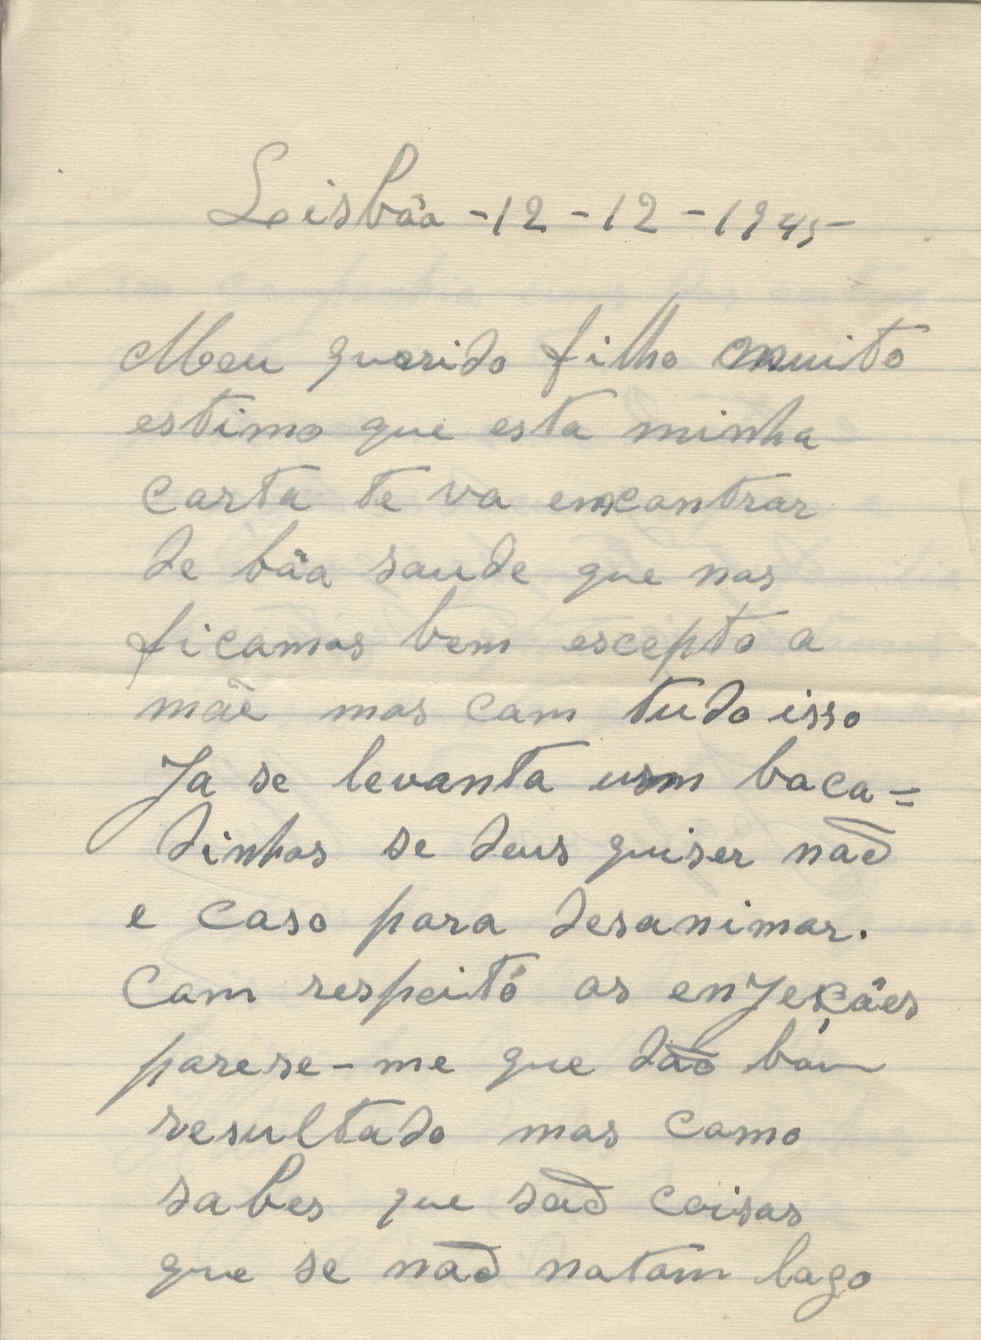 Lisbôa -12-12-1945-
Meu querido filho muito
estimo que esta minha
carta te va encontrar
de bôa saude que nos
ficamos bem escepto a
mãe mas com tudo isso
Ja se levanta um boca=
dinhos se deus quiser não
e caso para desanimar.
Com respeito as enjeções
parese-me que dão bom
resultado mas como
sabes que são coisas
que se não notam logo